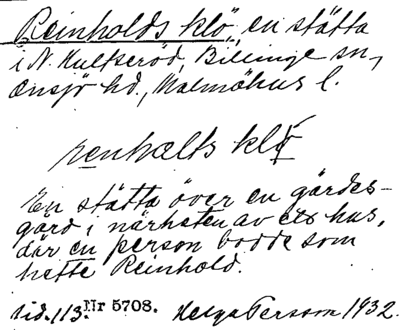 Reinholds klö, en stätta
i N. Hultseröd, Billinge sn,
Onsjö hd., Malmöhus l.
renhælts klö
En stätta över en gärdes-
gård i närheten av ett hus,
där en person bodde som
hette Reinhold.
sid. 113. Nr 5708. Helga Persson 1932.